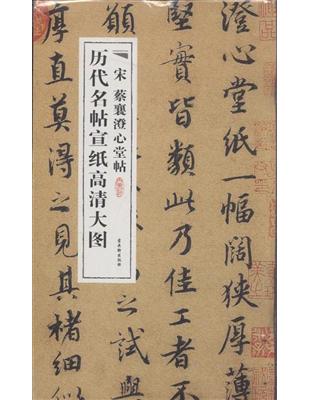 澄心堂紙一幅闊狹厚薄
堅實皆類此乃佳工者不
宋 蔡襄澄心堂帖
历代名帖宣纸高清大图
之試與
厚直莫得之見其楮細似